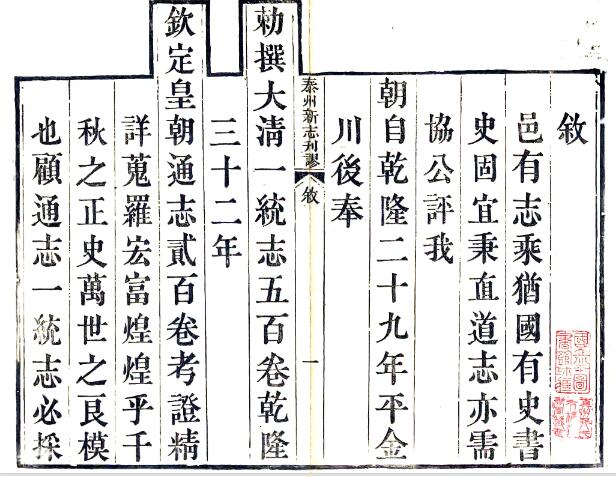 敘
邑有志乘猶國有史書
史固宜秉直道志亦需
協公評我
朝自乾隆二十九年平金
川後奉
泰州新志刊謬
敘
一
勅撰大清一統志五百卷乾隆
三十二年
欽定皇朝通志貳百卷考證精
詳蒐羅宏富煌煌乎千
秋之正史萬世之良模
也顧通志一統志必採